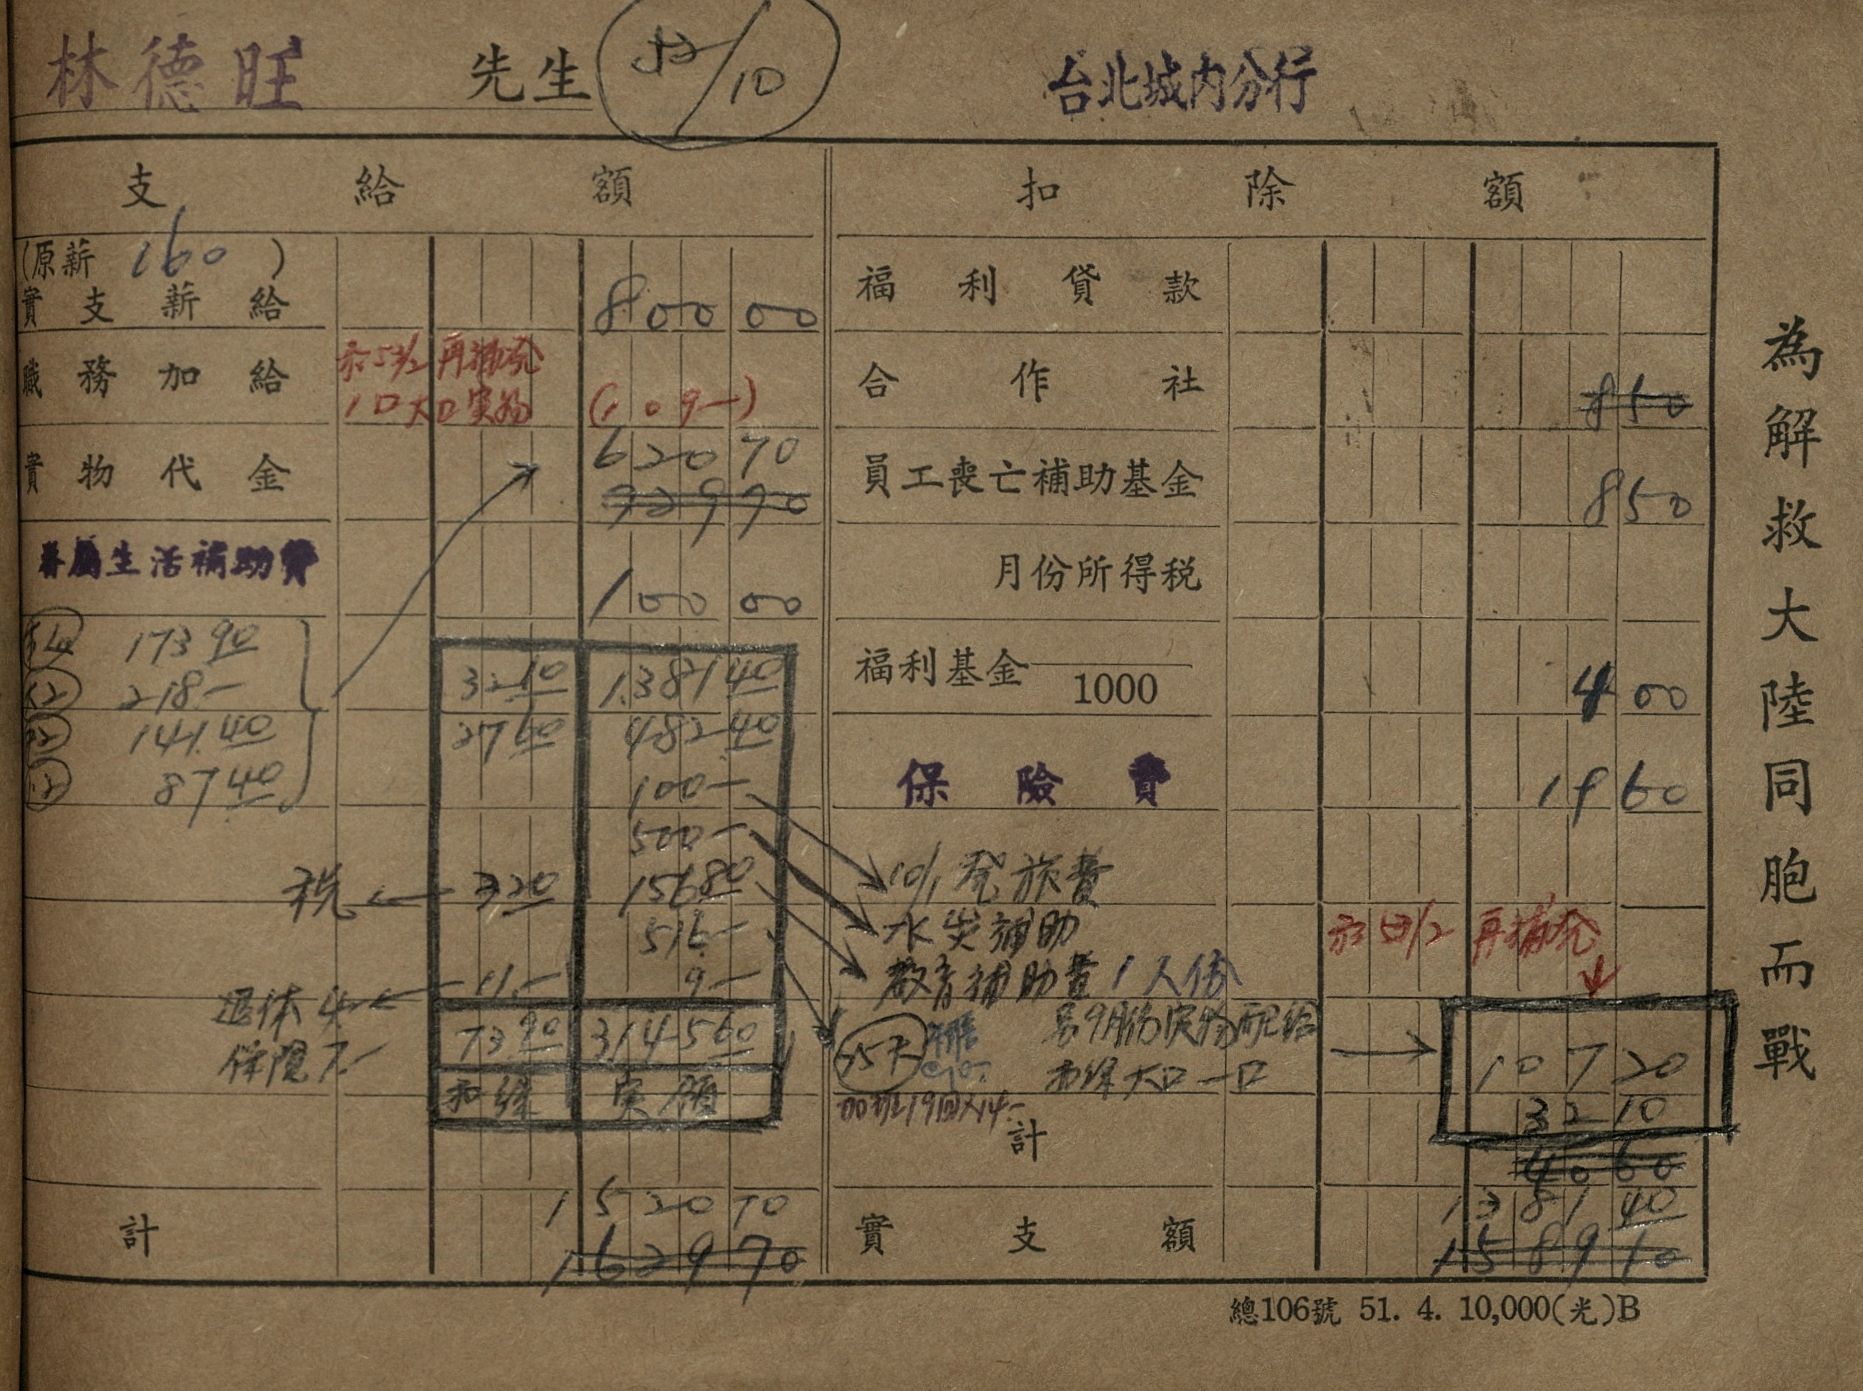 林德旺 先生 52/10 台北城內分行
支給額 扣除額
(原薪 160 )
實支薪給 800 00
福利貸款
職務加給
再補発
1口大口実物 (109-)
合作社 850
實物代金 620 70
929 70
員工喪亡補助基金 850
眷屬生活補助費 100 00
月份所得稅
173 90
218-
141 40
87 40
32 10 1381 40
27 60 482 40
100-
500-
税 3 20 156 80
516-
11- 9-
退休 4-
保険 7-
73 90 3145 60
扣繳 実領
福利基金 1000 4 00
保險費 19 60
10/1 発旅費
水災補助
教育補助費 1人份
再補発
另9月份実物配給
扣繳大口一口
加班19回×14-
107 20
32 10
計 40 60
計 1520 70
1629 70
實支額 1381 40
1589 10
為解救大陸同胞而戰
總106號 51. 4. 10,000(光)B